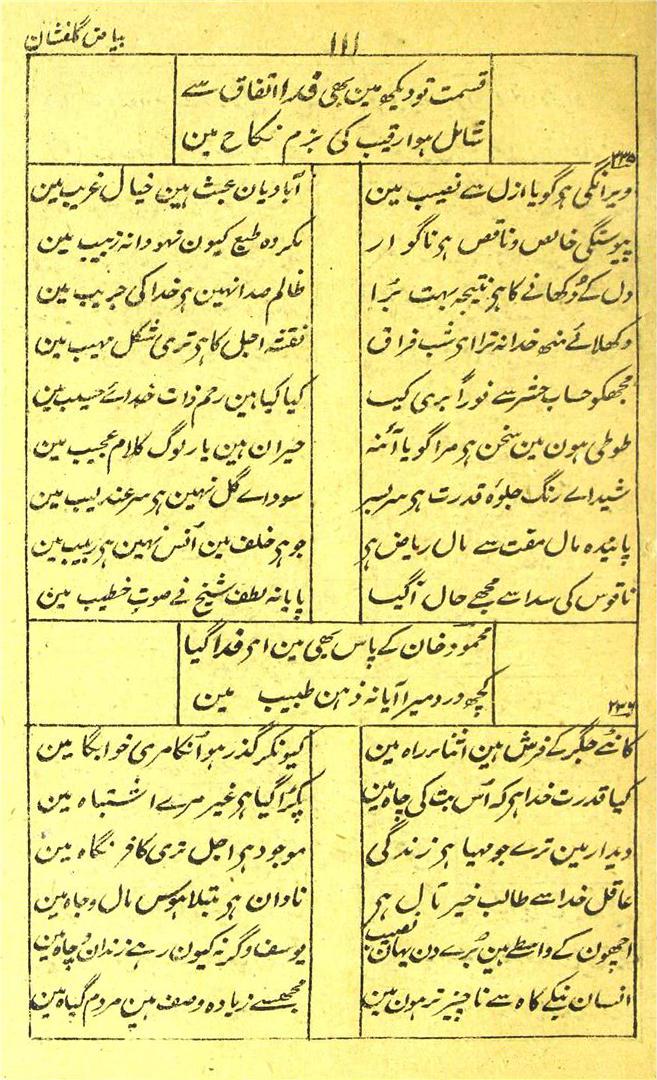 بیاض گلفشان
۱۱۱
قسمت تو دیکھو مین بھی فدا اتفاق سے
شامل ہوا رقیب کی بزم نکاح مین
۲۳۵
ویرانگی ہو گویا ازل سے نصیب مین
آبادیان عبث ہین خیال غریب مین
پیوستگی خالص و ناقص ہو ناگوار
مکروہ طبع کیون نہو دانہ زبیب مین
دل کے دکھانے کا ہو نتیجہ بہت برا
ظالم صدا نہین ہو خدا کی جریب مین
دکھلائے منھ خدا نہ ترا ای شب فراق
نقشہ اجل کا ہو تری شکل مہیب مین
مجھکو حساب حشر سے فوراً بری کیا
کیا کیا ہین رحم ذات خداے حسیب مین
طوطی ہون مین سخن ہو مرا گویا آئنہ
حیران ہین یار لوگ کلام عجیب مین
شیداے رنگ جلوہ قدرت ہو سربسر
سوداے گل نہین ہو سر عندلیب مین
پایندہ مال مفت سے مال ریاض ہو
جو ہو خلف مین انس نہین ہو ربیب مین
ناقوس کی صدا سے مجھے حال آگیا
پایا نہ لطف شیخ نے صوت خطیب مین
محمود خان کے پاس بھی مین ای فدا گیا
کچھ درد میرا آیا نہ ذہن طبیب مین
۲۳۶
کانٹے جگر کے فرش ہین اثناء راہ مین
کیونکر گذر ہو آنکا مری خوابگاہ مین
کیا قدرت خدا ہو کہ اس بت کی چاہ مین
پکڑا گیا ہو غیر مرے اشتباہ مین
دیدار مین ترے جو مہیا ہو زندگی
موجود ہو اجل تری کافر نگاہ مین
عاقل خدا سے طالب خیر مآل ہو
نادان ہو مبتلا ہوس مال و جاہ مین
اچھون کے واسطے ہین برے دن یہان نصیب
یوسف وگرنہ کیون رہے زندان و چاہ مین
انسان نیکے کاہ سے ناچیز تر ہون مین
مجھسے زیادہ وصف ہین مردم گیاہ مین